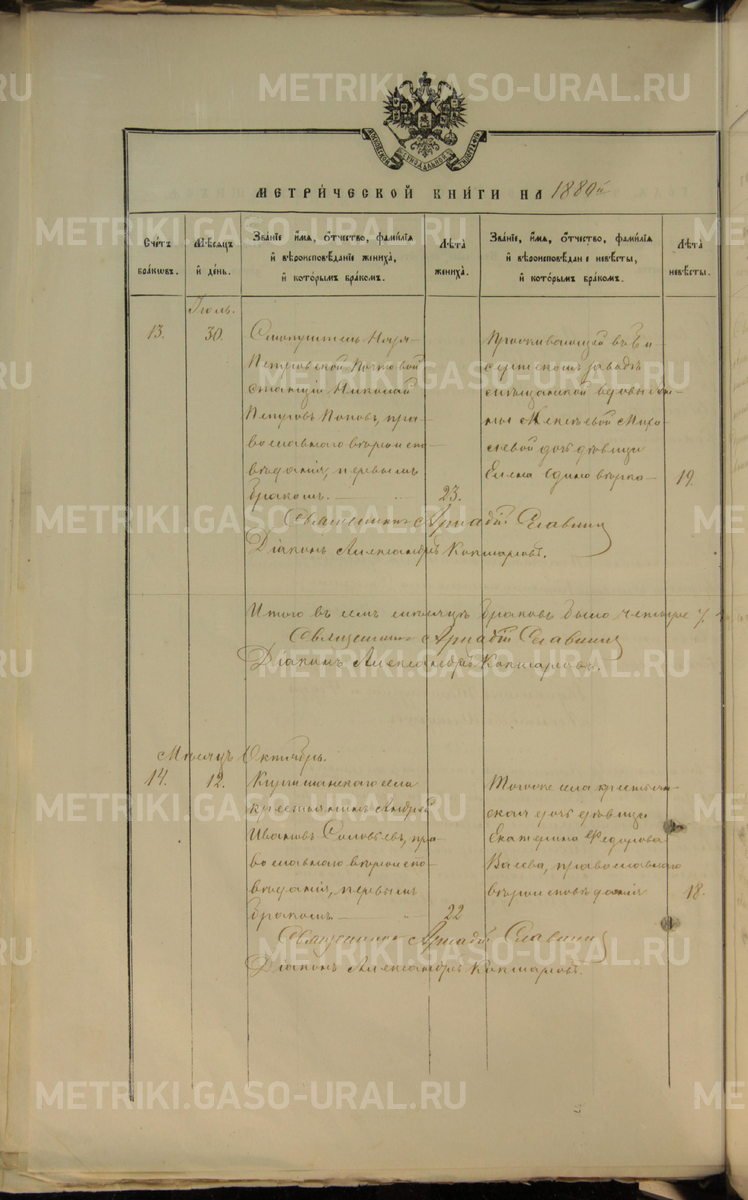 METRIKI.GASO-URAL.RU
МЕТРИ́ЧЕСКОЙ КНИ́ГИ НА 1880й
Сче́тъ бра́ковъ.
Мѣ́сяцъ и де́нь.
Зва́нїе, и́мя, ѻ́тчество, фами́лїя и вѣроисповѣ́данїе жениха́, и кото́рымъ бра́комъ.
Лѣ́та жениха̀.
Зва́нїе, и́мя, ѻ́тчество, фами́лїя и вѣроисповѣ́данїе невѣ́сты, и кото́рымъ бра́комъ.
Лѣ́та невѣ́сты.
Іюль.
13.
30.
Смотритель
Петровской Почтовой
станціи Николай
Петровъ Поповъ, пра-
вославнаго вѣроиспо-
вѣданія, первымъ
бракомъ.
23.
Проживающей въ Би-
сертскомъ заводѣ
мѣщанской вдовы
дочь дѣвица
Елена Единовѣрка
19.
Священникъ Аркадій Славнин
Діаконъ Александръ
Итого въ семъ мѣсяцѣ браковъ было четыре
Священникъ Аркадій Славнин
Діаконъ Александръ
Мѣсяцъ Октябрь.
14.
12.
Киргишанскаго села
крестьянинъ Андрей
Ивановъ Соловьевъ, пра-
вославнаго вѣроиспо-
вѣданія, первымъ
бракомъ.
22
Тогоже села крестьян-
ская дочь дѣвица
Екатерина Ѳедорова
православнаго
вѣроисповѣданія
18.
Священникъ Аркадій Славнин
Діаконъ Александръ